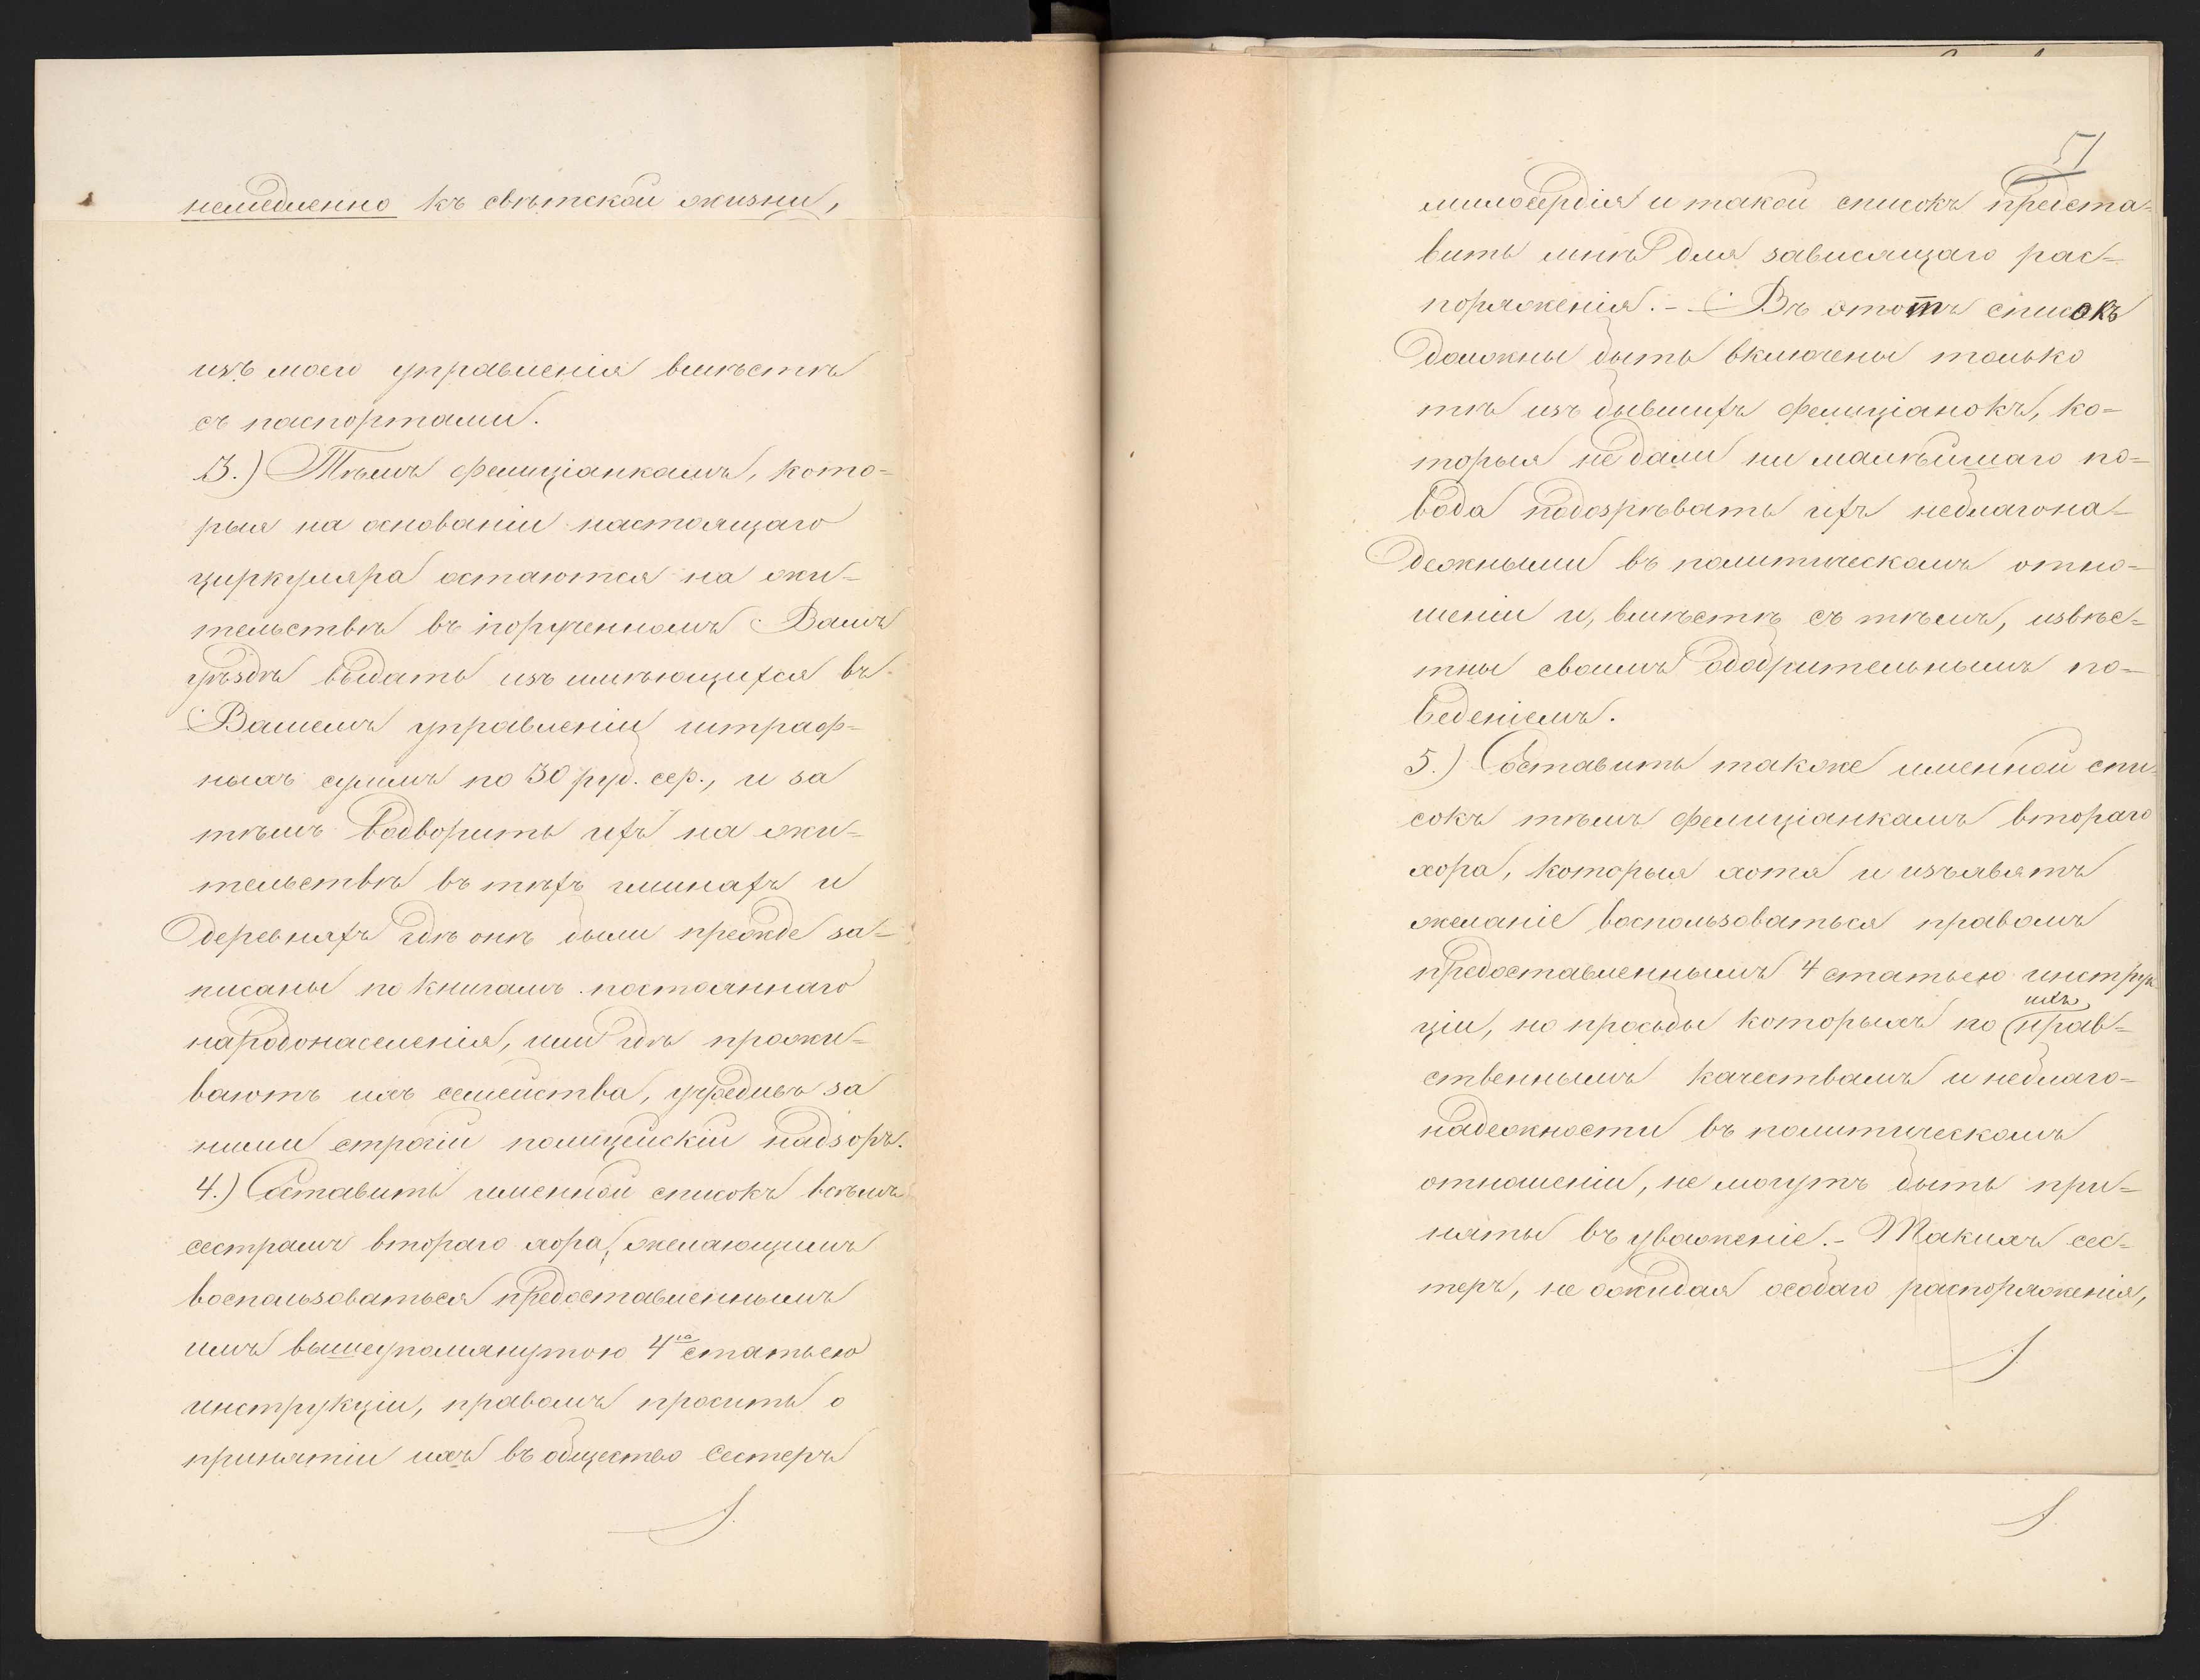 немедленно къ свѣтской жизни,
изъ моего управленія вмѣстѣ
съ паспортами.
3.) Тѣмъ фелиціанкамъ, кото=
рыя на основаніи настоящаго
циркуляра остаются на жи=
тельствѣ въ порученномъ Вамъ
уѣздѣ выдать изъ имѣющихся въ
Вашемъ управленіи штраф=
ныхъ суммъ по 30 руб. сер., и за
тѣмъ водворить ихъ на жи=
тельствѣ въ тѣхъ гминахъ и
деревняхъ гдѣ онѣ были прежде за=
писаны по книгамъ постояннаго
народонаселенія, или гдѣ прожи=
ваютъ ихъ семейства, учредивъ за
ними строгій полицейскій надзоръ.
4.) Составить именной списокъ всѣмъ
сестрамъ втораго хора, желающимъ
воспользоваться предоставленнымъ
имъ вышеупомянутою 4ю статьею
инструкціи, правомъ просить о
принятіи ихъ въ общество Сестеръ
51
милосердія и такой списокъ предста=
вить мнѣ для зависящаго рас=
поряженія. - Въ этотъ списокъ
должны быть включены только
тѣ изъ бывшихъ фелиціанокъ, ко=
торыя не дали ни малѣйшаго по=
вода подозрѣвать ихъ неблагона=
дежными въ политическомъ отно=
шеніи и, вмѣстѣ съ тѣмъ, извѣс=
тны своимъ одобрительнымъ по=
веденіемъ.
5.) Составить также именной спи=
сокъ тѣмъ фелиціанкамъ втораго
хора, которыя хотя и изъявятъ
желаніе воспользоваться правомъ
предоставленнымъ 4 статьею инструк
ціи, но просьбы которыхъ по ихъ нрав=
ственнымъ качествамъ и неблаго=
надежности въ политическомъ
отношеніи, не могутъ быть при=
няты въ уваженіе. - Такихъ сес=
теръ, не ожидая особаго распоряженія,